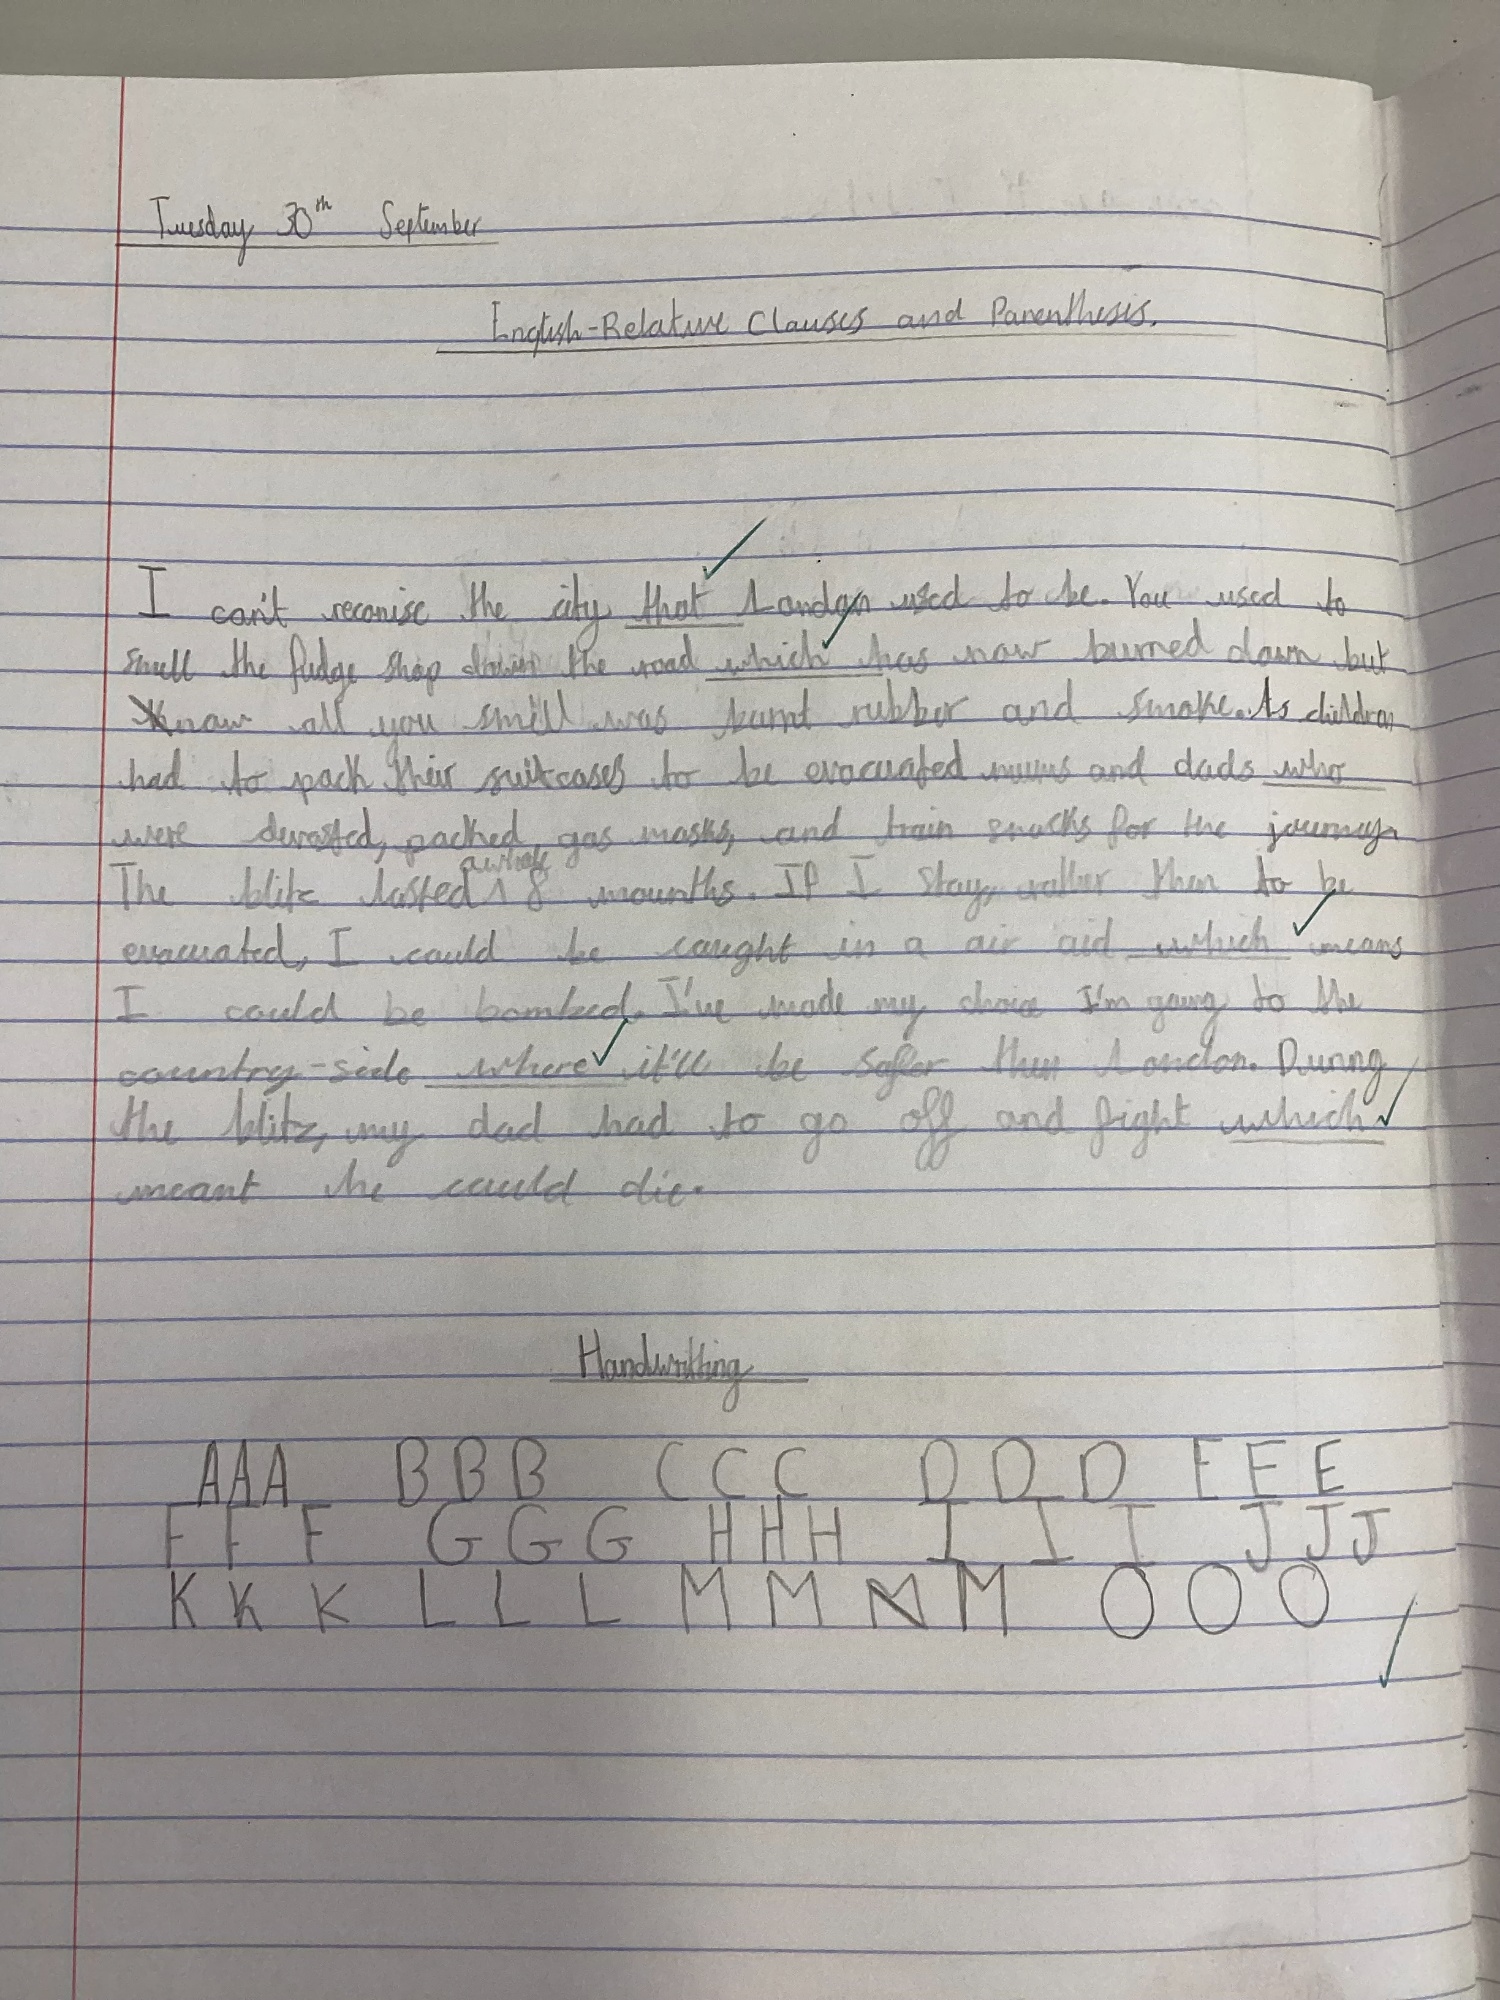 Tuesday 30th September
English-Relative Clauses and Parenthesis.
I can't reconise the city that London used to be. You used to
smell the fudge shop down the road which has now burned down but
know all you smell was burnt rubber and smoke. As children
had to pack their suitcases to be evacuated mums and dads who
were devasted, packed gas masks, and train snacks for the journey.
The blitz lasted a whole 8 mounths. If I stay, rather then to be
evacuated, I could be caught in a air aid which means
I could be bombed. I've made my choice I'm going to the
country-side where it'll be safer then London. During
the blitz, my dad had to go off and fight which
meant he could die.
Handwriting
A A A B B B C C C D D D E E E
F F F G G G H H H I I I J J J
K K K L L L M M N M O O O